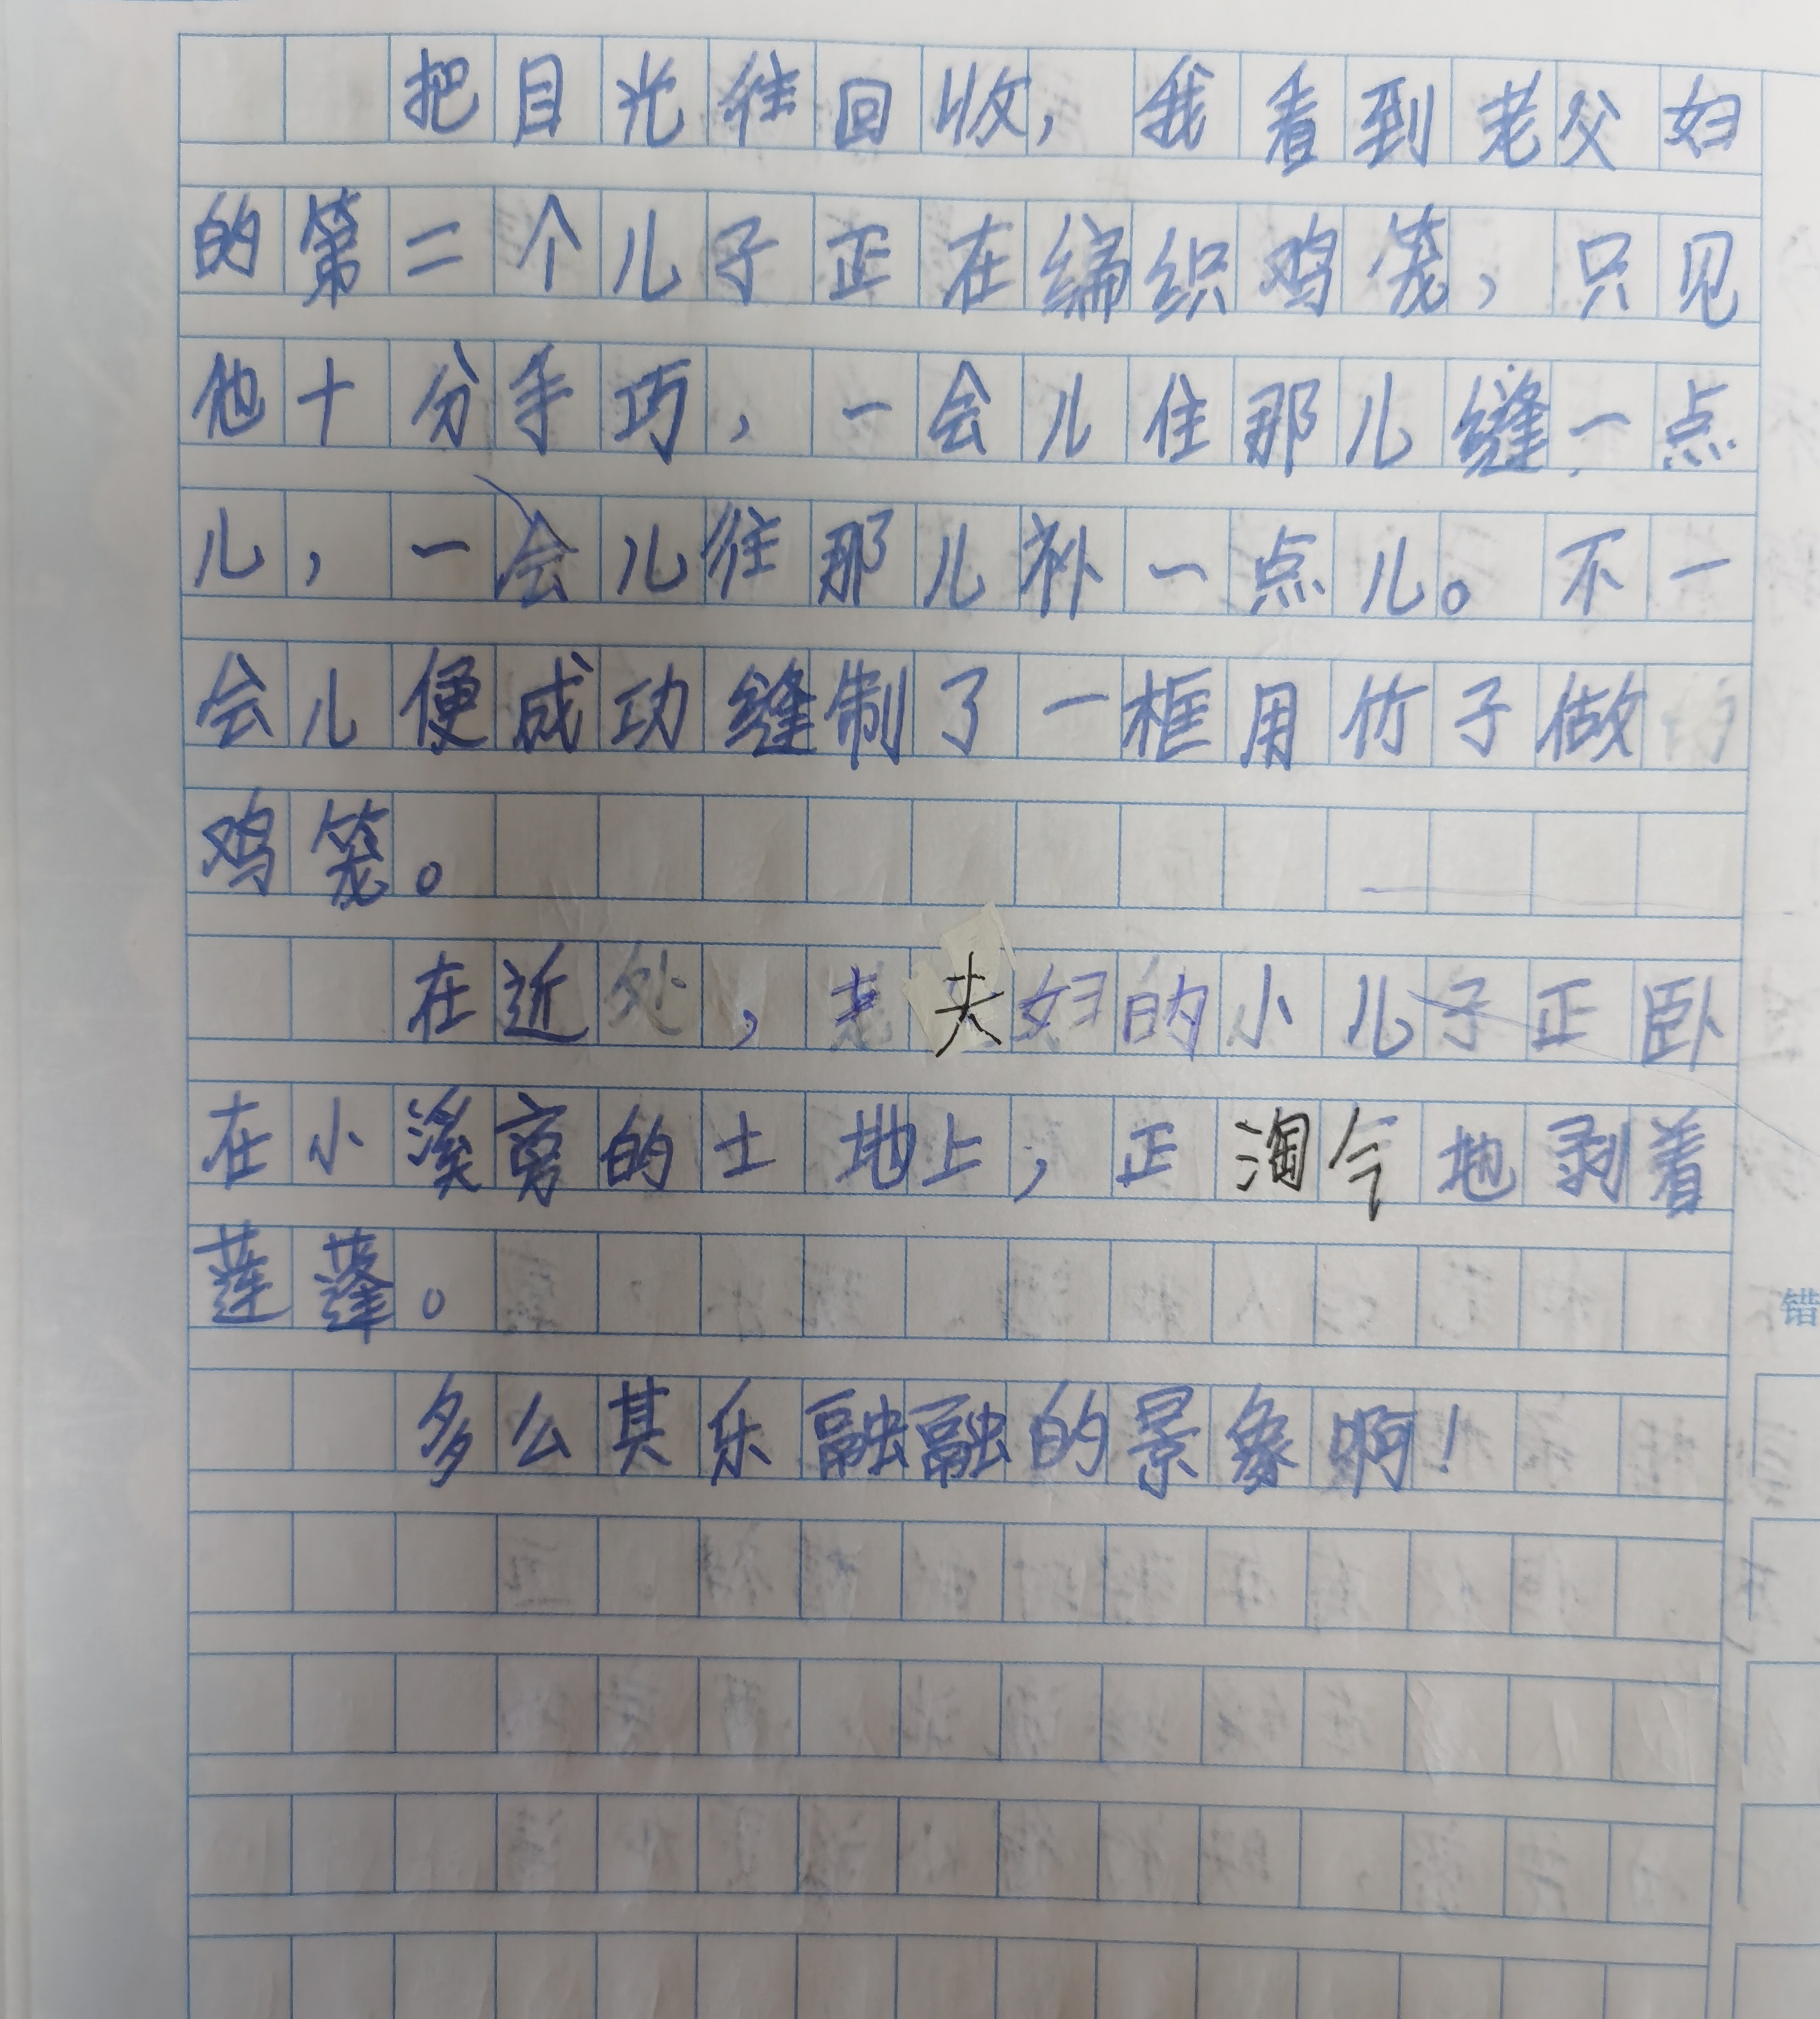 把目光往回收，我看到老父妇
的第二个儿子正在编织鸡笼，只见
他十分手巧，一会儿住那儿缝一点
儿，一会儿往那儿补一点儿。不一
会儿便成功缝制了一框用竹子做
鸡笼。
在近处，老夫妇的小儿子正卧
在小溪旁的土地上，正淘气地剥着
莲蓬。
多么其乐融融的景象啊！
错